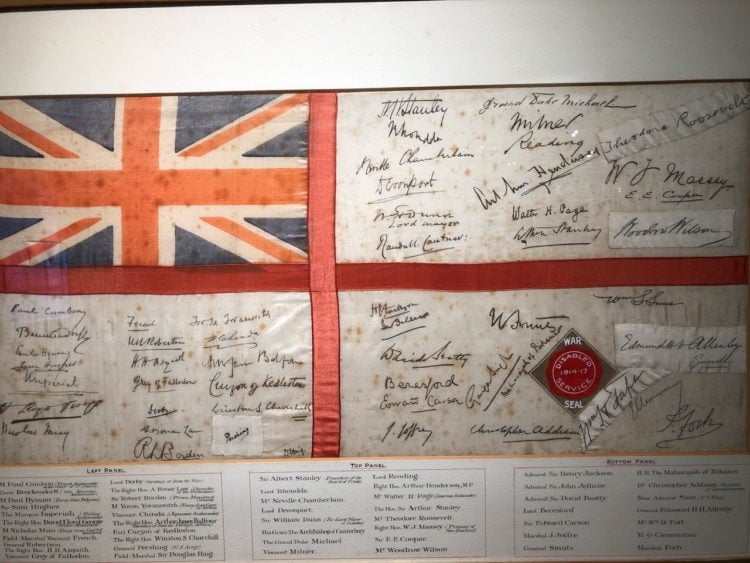 A H Stanley
Rhondda
Neville Chamberlain
Devonport
W S Dunn
Lord Mayor
Randall Cantuar:
Grand Duke Michael
Milner
Reading
Arthur Henderson
Walter H. Page
Arthur Stanley
Theodore Roosevelt
W F Massey
E E Cooper
Woodrow Wilson
Paul Cambon
Benckendorff
Paul Hymans
Sam Hughes
Imperiali
D Lloyd George
Nicolas Misu
French
W R Robertson
H H Asquith
Grey of Fallodon
Derby
A Bonar Law
R L Borden
Arthur James Balfour
Curzon of Kedleston
Winston S. Churchill
Pershing
D Haig
H B Jackson
David Beatty
Beresford
Edward Carson
J. Joffre
Christopher Addison
Maharajah of Bikaner
Wm S Sims
Edmund H H Allenby
General
Wm H Taft
F. Foch
WAR
DISABLED
1914-17
SERVICE
SEAL
LEFT PANEL
M. Paul Cambon
Count Benckendorff
M. Paul Hymans
Sir Sam Hughes
The Marquis Imperiali
The Right Hon. David Lloyd George
M. Nicholas Misu
Field-Marshal Viscount French
General Robertson
The Right Hon. H.H. Asquith
Viscount Grey of Fallodon
Lord Derby (Secretary of State for War)
The Right Hon. A. Bonar Law
Sir Robert Borden
M. Yovan Yovanovitch
Viscount Chinda
The Right Hon. Arthur James Balfour
Earl Curzon of Kedleston
The Right Hon. Winston S. Churchill
General Pershing (U.S. Army)
Field-Marshal Sir Douglas Haig
TOP PANEL
Sir Albert Stanley (President of the Board of Trade)
Lord Rhondda
Mr. Neville Chamberlain
Lord Devonport
Sir William Dunn (Ex Lord Mayor of London)
His Grace The Archbishop of Canterbury
The Grand Duke Michael
Viscount Milner
Lord Reading
Right Hon. Arthur Henderson, M.P.
Mr. Walter H. Page (American Ambassador)
The Hon. Sir Arthur Stanley
Mr. Theodore Roosevelt
Right Hon. W.J. Massey
Sir E.E. Cooper
Mr. Woodrow Wilson
BOTTOM PANEL
Admiral Sir Henry Jackson
Admiral Sir John Jellicoe
Admiral Sir David Beatty
Lord Beresford
Sir Edward Carson
Marshal J. Joffre
General Smuts
H.H. The Maharajah of Bikaner
Dr. Christopher Addison
Rear Admiral Sims
General Edmund H.H. Allenby
Mr. Wm H. Taft
M. G. Clemenceau
Marshal Foch